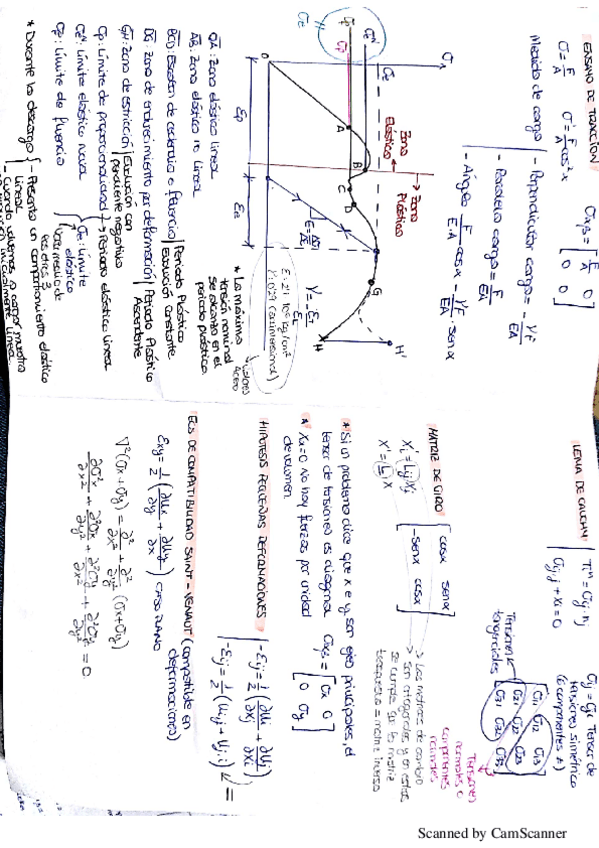 ENSAYO DE TRACCIÓN
σ = F/A   σ' = F/A cos²α   σxyz = [F/A 0; 0 0]
Medida de carga
- Perpendicular carga = -γF/EA
- Paralela carga = F/EA
- Ángulo F/E·A cosα - γF/EA · senα
Zona Elástica
Zona Plástica
A
B
C
D
G
H
H'
O
E = Δσ/Δε
γ = -εT/εL
E = 2'1·10⁶ kg/cm²
γ = 0'29 (adimensional)
valores Acero
* La máxima
tensión nominal
se alcanza en el
periodo plástico.
OA: Zona elástica lineal
AB: Zona elástica no lineal
BCD: Escalón de cedencia o fluencia | Periodo Plástico Evolución Constante
DG: Zona de endurecimiento por deformación | Periodo Plástico Ascendente
GH: Zona de estricción | Evolución con pendiente negativa
σp: Límite de proporcionalidad → Periodo elástico lineal
σEN: Límite elástico nuevo
σF: Límite de fluencia
σE: Límite elástico
* Durante la descarga
- Presenta un comportamiento elástico lineal
- Cuando volvemos a cargar muestra
LEMA DE CAUCHY
Ti^n = σij · nj
σij,j + Xi = 0
σij = σji Tensor de
tensiones simétrico
(6 componentes ≠)
[σ11 σ12 σ13; σ21 σ22 σ23; σ31 σ32 σ33]
Tensiones tangenciales
Tensiones normales o componentes normales
MATRIZ DE GIRO
xi' = Lij xj
x' = (L) x
[cosα senα; -senα cosα]
→ Las matrices de cambio
son ortogonales y en estas
se cumple que la matriz
traspuesta = matriz inversa
* Si un problema dice que x e y son ejes principales, el
tensor de tensiones es diagonal σxy = [σx 0; 0 σy]
* Xx = 0 No hay fuerzas por unidad
de volumen
HIPÓTESIS PEQUEÑAS DEFORMACIONES
- εij = 1/2 (∂ui/∂xj + ∂uj/∂xi)
- εij = 1/2 (ui,j + uj,i)
ECS DE COMPATIBILIDAD SAINT-VENANT (compatible en
deformaciones)
εxy = 1/2 (∂ux/∂y + ∂uy/∂x) caso plano
∇²(σx + σy) = ∂²/∂x² + ∂²/∂y² (σx + σy)
∂²σx/∂x² + ∂²σx/∂y² + ∂²σy/∂x² + ∂²σy/∂y² = 0
Scanned by CamScanner